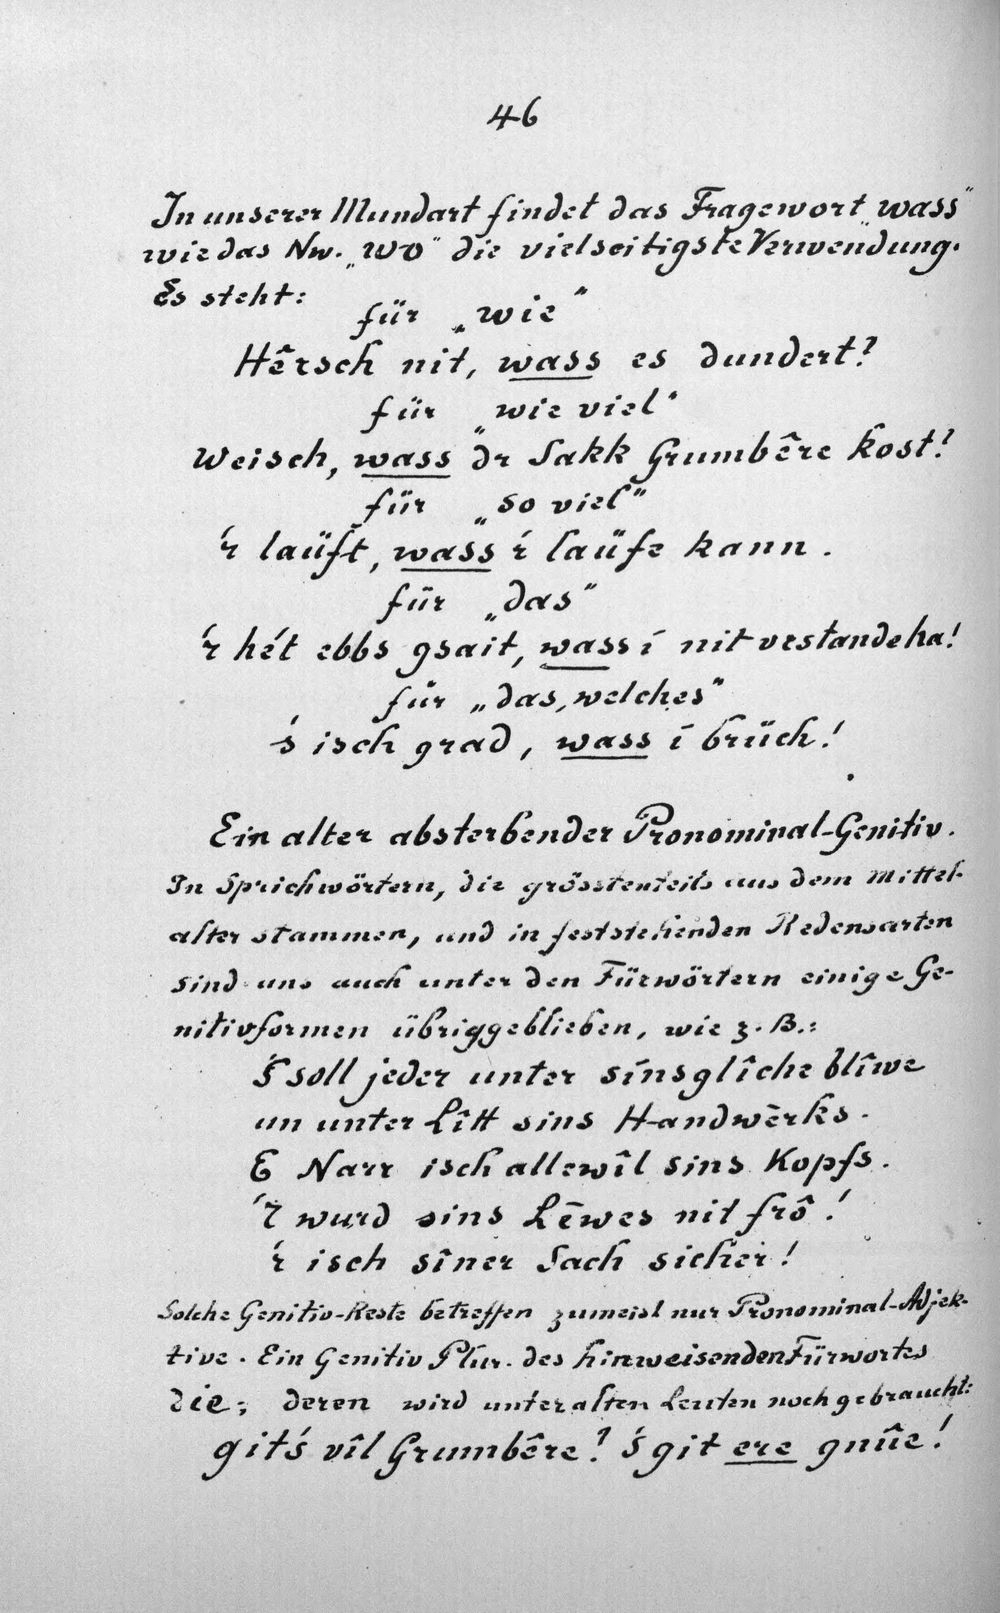 46
In unserer Mundart findet das Fragewort „wass“
wie das Nw. „wo“ die vielseitigste Verwendung.
Es steht:
für „wie“
Hêrsch nit, wass es dundert?
für „wie viel“
Weisch, wass dr Sakk Grumbêre kost?
für „so viel“
'r laüft, wass 'r laüfe kann.
für „das“
'r hét ebbs gsait, wass i nit verstande ha!
für „das, welches“
's isch grad, wass i brüch!
Ein alter absterbender Pronominal-Genitiv.
In Sprichwörtern, die grösstenteils aus dem Mittel-
alter stammen, und in feststehenden Redensarten
sind uns auch unter den Fürwörtern einige Ge-
nitivformen übriggeblieben, wie z. B.:
's soll jeder unter sinsglîche blîwe
un unter Lîtt sins Handwērks.
E Narr isch allewîl sins Kopfs.
'r wurd sins Lēwes nit frô!
'r isch sîner Sach sicher!
Solche Genitiv-Reste betreffen zumeist nur Pronominal-Adjek-
tive. Ein Genitiv Plur. des hinweisenden Fürwortes
die; deren wird unter alten Leuten noch gebraucht:
git's vîl Grumbêre? 's git ere gnûe!